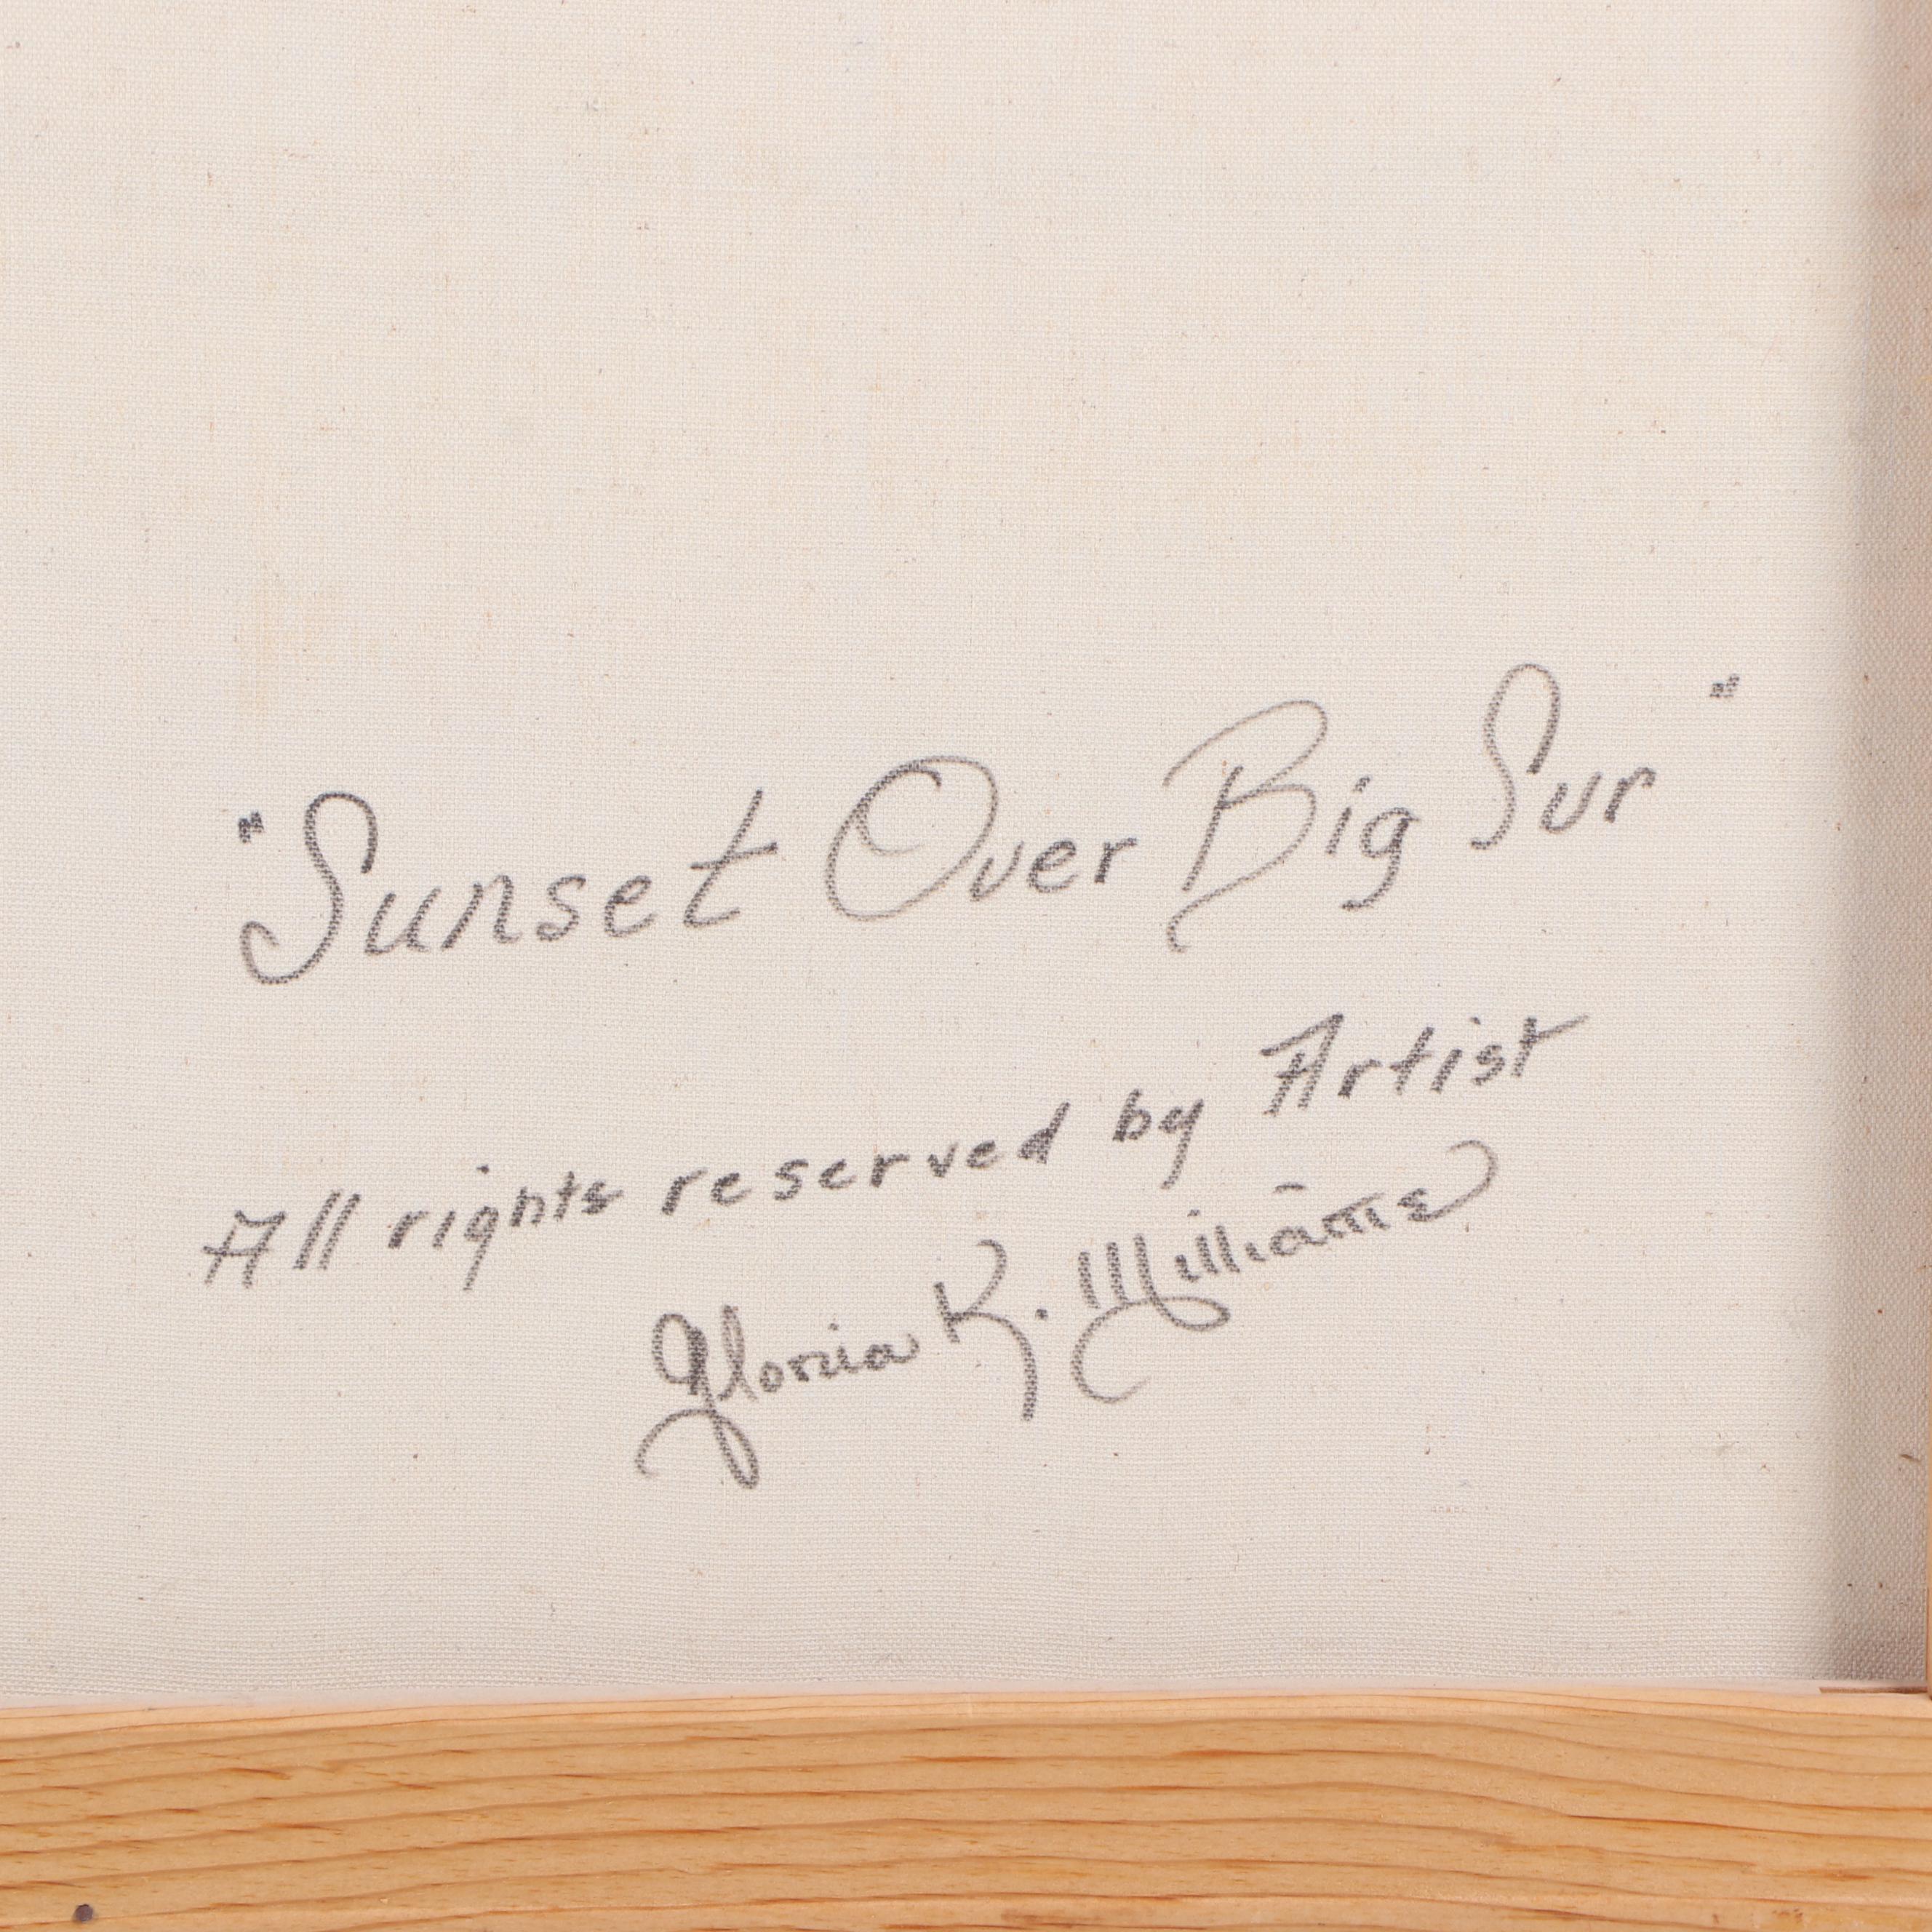 "Sunset Over Big Sur"
All rights reserved by Artist
Gloria K. Williams